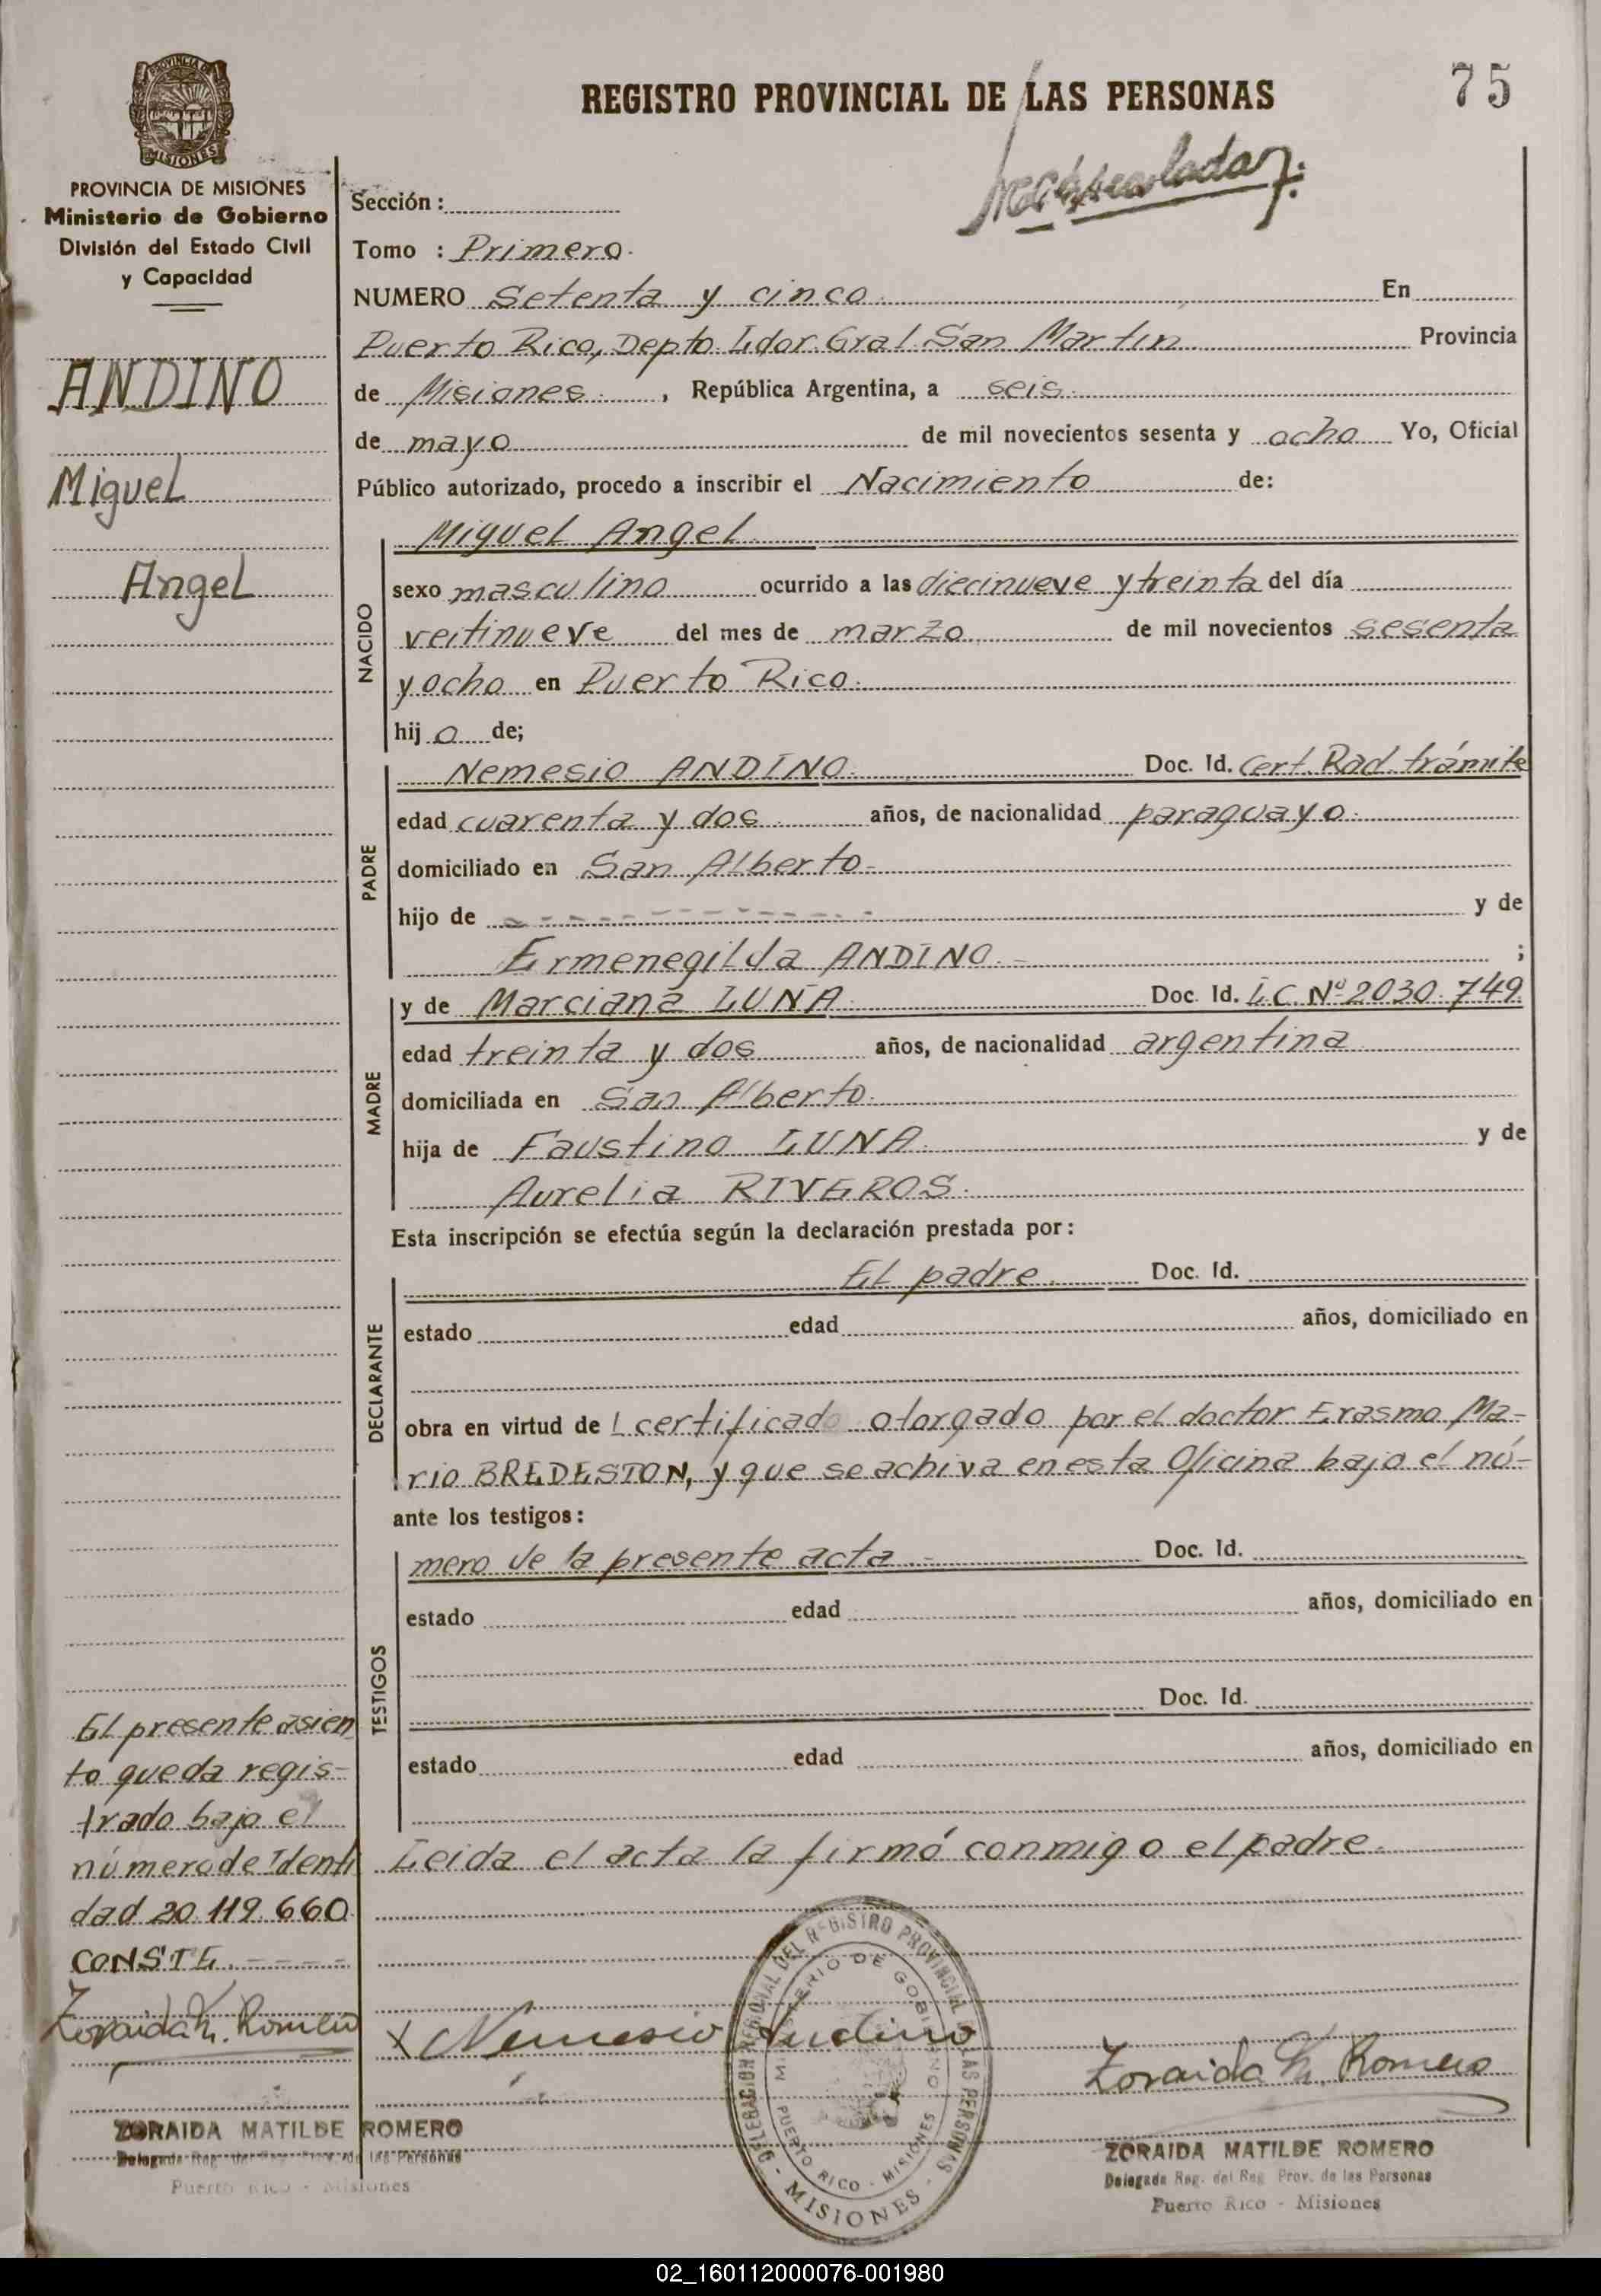 REGISTRO PROVINCIAL DE LAS PERSONAS
75
PROVINCIA DE MISIONES
Ministerio de Gobierno
División del Estado Civil
y Capacidad
ANDINO
Miguel
Angel
Sección :
Tomo : Primero.
NUMERO Setenta y cinco. En
Puerto Rico, Depto. Ldor. Gral. San Martin Provincia
de Misiones , República Argentina, a seis.
de mayo de mil novecientos sesenta y ocho Yo, Oficial
Público autorizado, procedo a inscribir el Nacimiento de:
NACIDO
Miguel Angel.
sexo masculino ocurrido a las diecinueve y treinta del día
veitinueve del mes de marzo de mil novecientos sesenta
y ocho en Puerto Rico.
hij o de;
PADRE
Nemesio ANDINO. Doc. Id. Cert. Rad. trámite
edad cuarenta y dos años, de nacionalidad paraguayo.
domiciliado en San Alberto.
hijo de - - - - - - - - - - y de
Ermenegilda ANDINO. - ;
MADRE
y de Marciana LUNA Doc. Id. L.C. Nº 2030.749.
edad treinta y dos años, de nacionalidad argentina
domiciliada en San Alberto.
hija de Faustino LUNA. y de
Aurelia RIVEROS.
Esta inscripción se efectúa según la declaración prestada por:
DECLARANTE
El padre. Doc. Id.
estado edad años, domiciliado en
obra en virtud de l certificado otorgado por el doctor Erasmo Ma-
rio BREDESTON, y que se achiva en esta Oficina bajo el nú-
ante los testigos:
TESTIGOS
mero de la presente acta.- Doc. Id.
estado edad años, domiciliado en
Doc. Id.
estado edad años, domiciliado en
Leida el acta la firmó conmigo el padre.
El presente asien
to queda regis-
trado bajo el
número de Identi
dad 20.119.660
CONSTE. - - - -
Zoraida M. Romero
X Nemesio Andino
Zoraida M. Romero
DELEGACION REGIONAL DEL REGISTRO PROVINCIAL DE LAS PERSONAS - MISIONES -
MINISTERIO DE GOBIERNO
PUERTO RICO - MISIONES
ZORAIDA MATILDE ROMERO
las Personas
Puerto Rico - Misiones
ZORAIDA MATILDE ROMERO
Delegada Reg. del Reg. Prov. de las Personas
Puerto Rico - Misiones
02_160112000076-001980